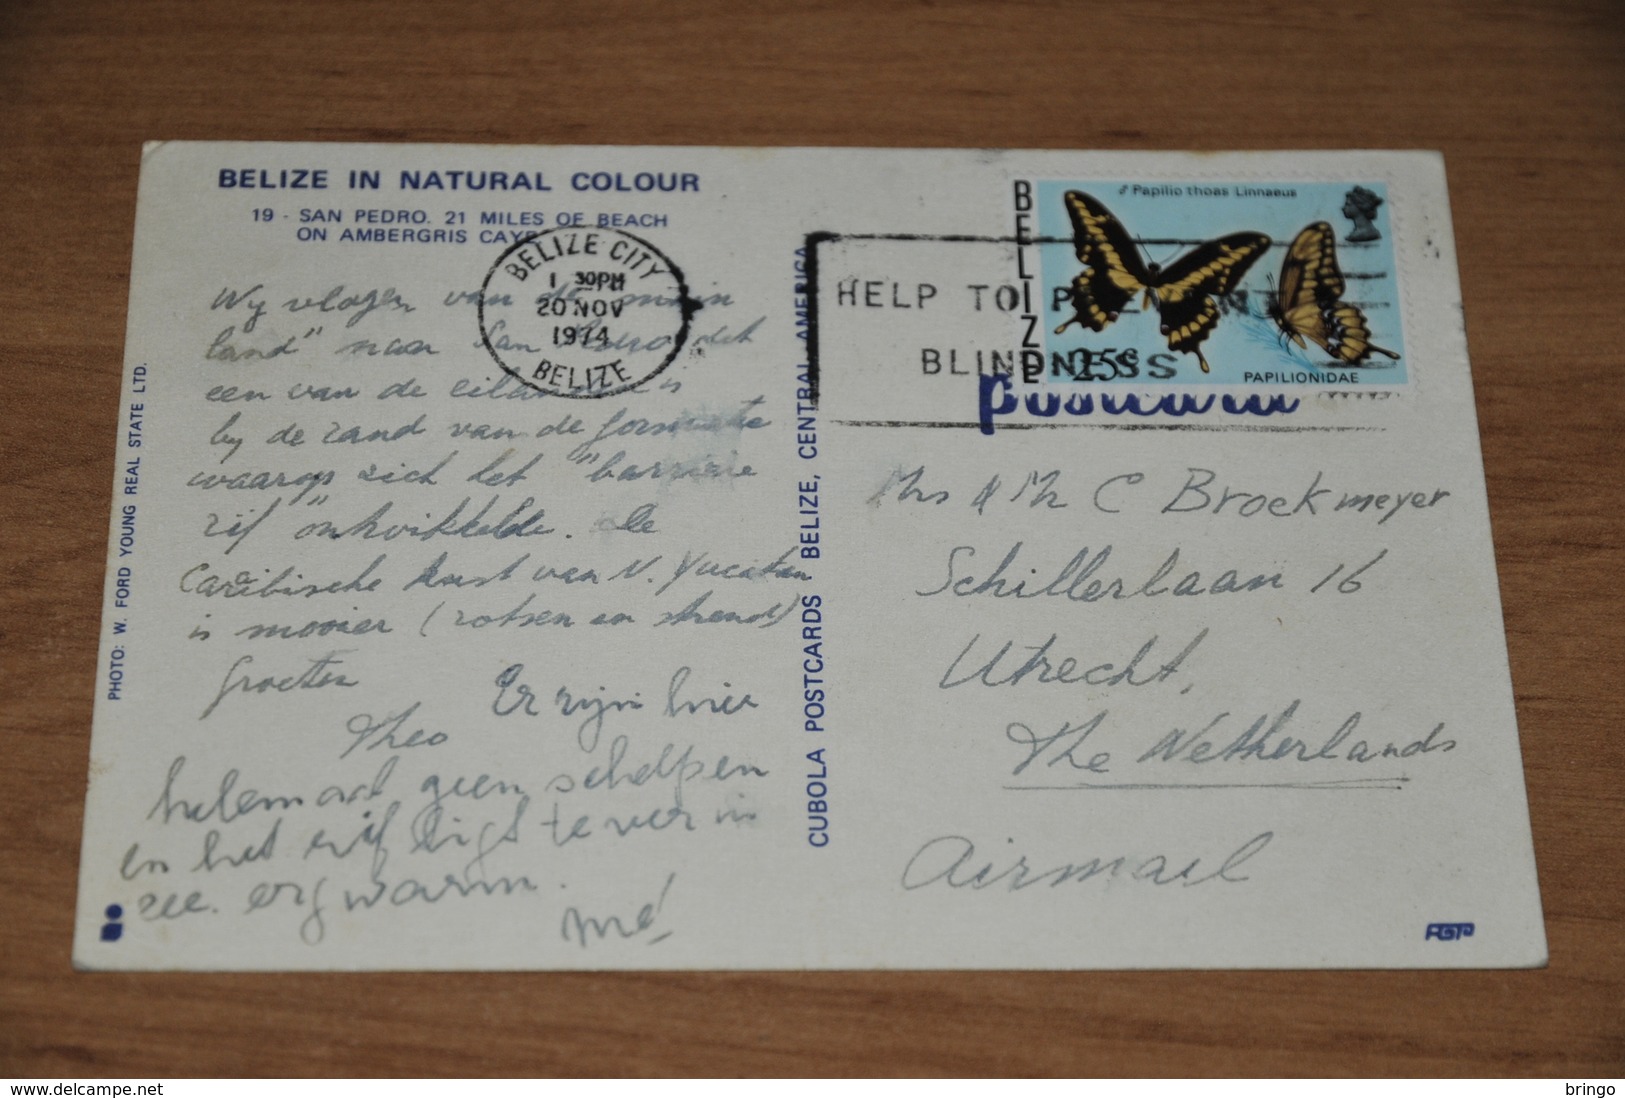 BELIZE IN NATURAL COLOUR
19 - SAN PEDRO. 21 MILES OF BEACH
ON AMBERGRIS CAYE
BELIZE CITY
1 30PM
20 NOV
1974
BELIZE
Wy vlogen van de "main
land" naar San Pedro, dat
een van de eilanden is
by de rand van de formatie
waarop zich het "barriere
rif" ontwikkelde. De
Caribische kust van N. Yucatan
is mooier (rotsen en strand)
Groeten
Theo
Er zijn hier
helemaal geen schelpen
en het rif ligt te ver in
zee. erg warm.
Mé
PHOTO: W. FORD YOUNG REAL STATE LTD.
CUBOLA POSTCARDS BELIZE, CENTRAL AMERICA
HELP TO PREVENT
BLINDNESS
BELIZE
♂ Papilio thoas Linnaeus
25c
PAPILIONIDAE
postcard
Mrs & Mr C Brockmeyer
Schillerlaan 16
Utrecht,
The Netherlands
Airmail
FGP
bringo